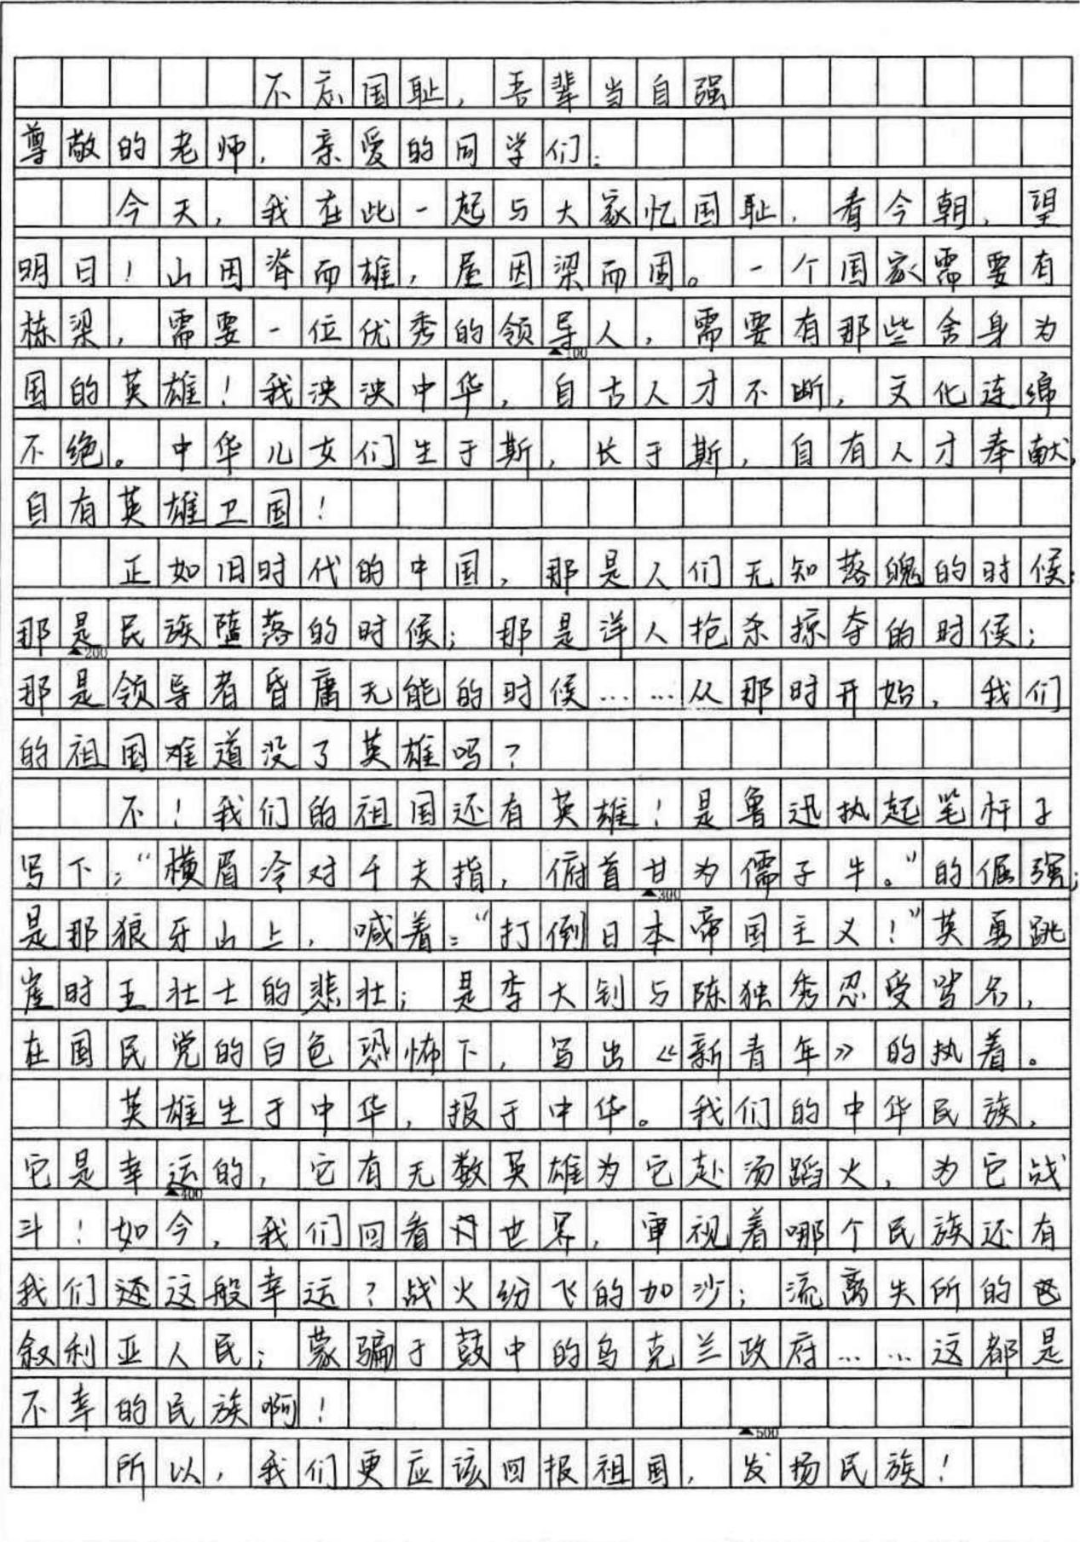 不忘国耻，吾辈当自强
尊敬的老师，亲爱的同学们：
今天，我在此一起与大家忆国耻，看今朝，望
明日！山因脊而雄，屋因梁而固。一个国家需要有
栋梁，需要一位优秀的领导人，需要有那些舍身为
▲100
国的英雄！我泱泱中华，自古人才不断，文化连绵
不绝。中华儿女们生于斯，长于斯，自有人才奉献，
自有英雄卫国！
正如旧时代的中国，那是人们无知落魄的时候；
那是民族堕落的时候；那是洋人抢杀掠夺的时候；
▲200
那是领导者昏庸无能的时候……从那时开始，我们
的祖国难道没了英雄吗？
不！我们的祖国还有英雄！是鲁迅执起笔杆子
写下：“横眉冷对千夫指，俯首甘为儒子牛。”的倔强；
▲300
是那狼牙山上，喊着：“打倒日本帝国主义！”英勇跳
崖时五壮士的悲壮；是李大钊与陈独秀忍受骂名，
在国民党的白色恐怖下，写出《新青年》的执着。
英雄生于中华，报于中华。我们的中华民族，
它是幸运的，它有无数英雄为它赴汤蹈火，为它战
▲400
斗！如今，我们回看世界，审视着哪个民族还有
我们还这般幸运？战火纷飞的加沙；流离失所的
叙利亚人民；蒙骗于鼓中的乌克兰政府……这都是
不幸的民族啊！
▲500
所以，我们更应该回报祖国，发扬民族！